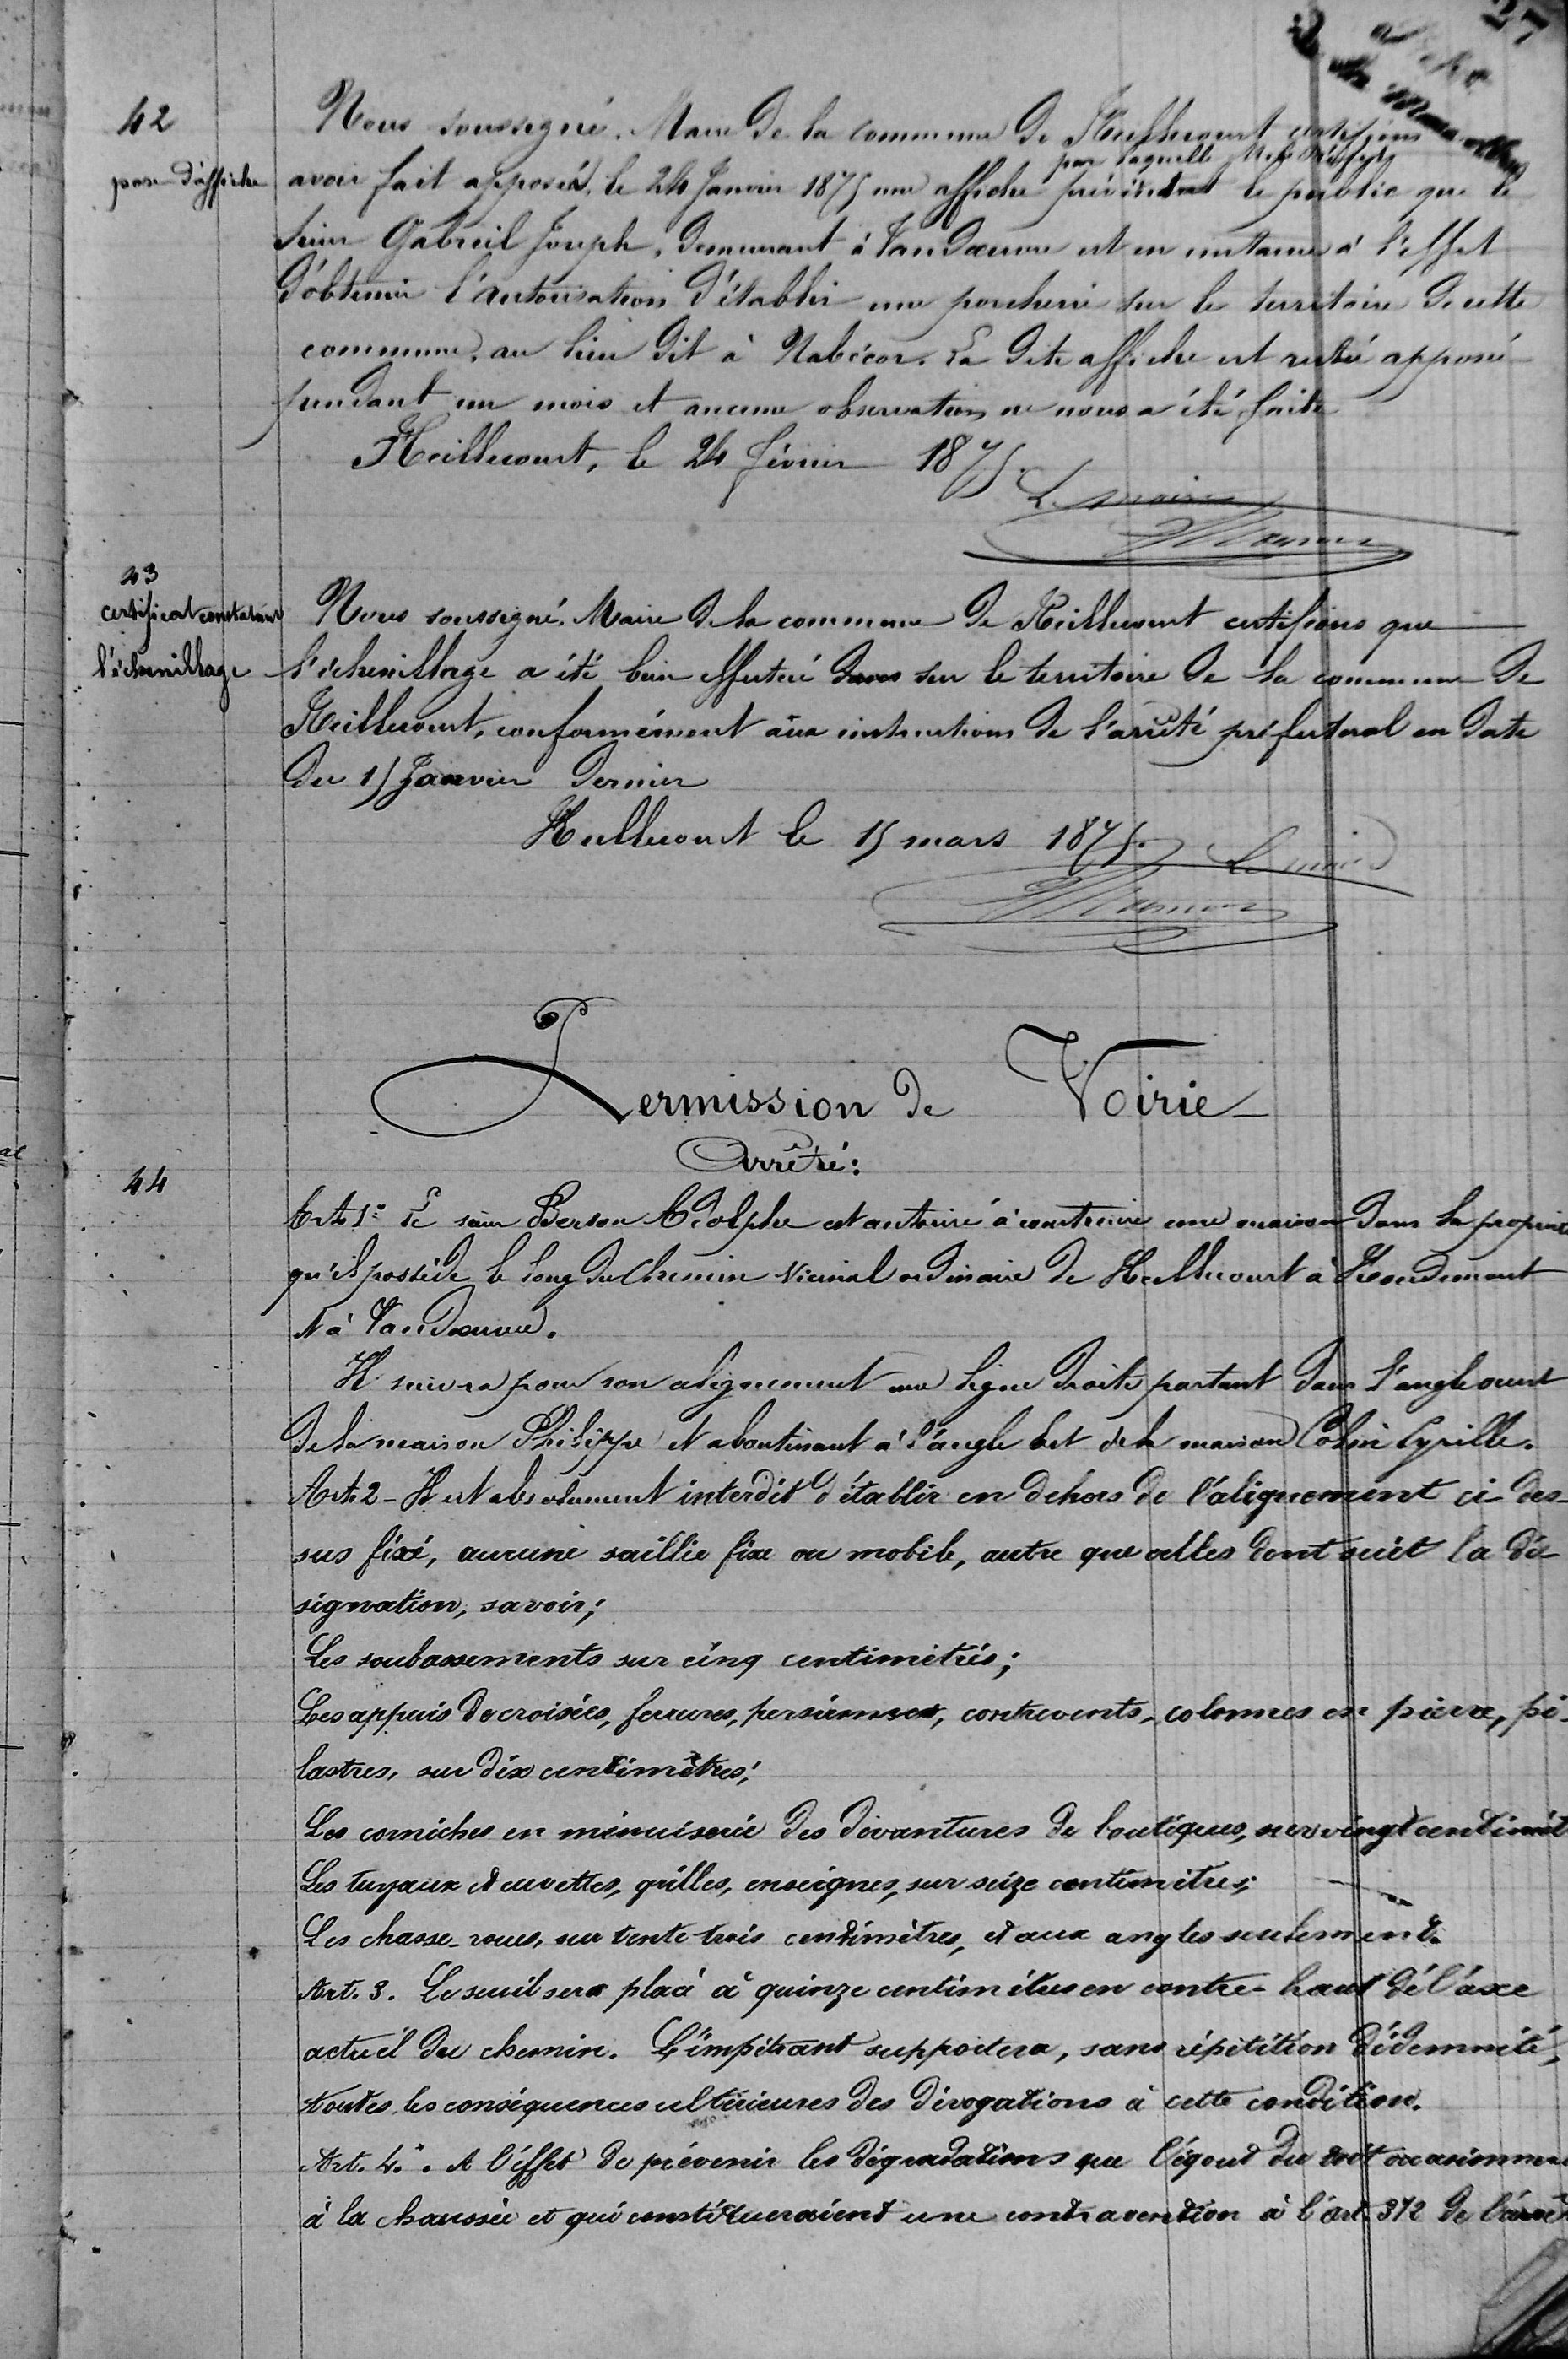 27
42
pose d'affiche
Nous soussigné, Maire de la commune de Heillecourt certifions
par laquelle Mr le Préfet
avoir fait apposer, le 24 Janvier 1875 une affiche prévient le public que le
sieur Gabreil Joseph, demeurant à Vandœuvre est en instance à l'effet
d'obtenir l'autorisation d'établir une porcherie sur le territoire de cette
commune, au lieu dit à Nabécor. La dite affiche est restée apposé
pendant un mois et aucune observation ne nous a été faite
Heillecourt, le 24 février 1875.
Le maire
43
certificat constatant
l'échenillage
Nous soussigné, Maire de la commune de Heillecourt certifions que
l'échenillage a été bien effectué dans sur le territoire de la commune de
Heillecourt, conformément aux instructions de l'arrêté préfectoral en date
du 15 Janvier dernier
Heillecourt le 15 mars 1875.
Le maire
Permission de Voirie
Arrêté:
44
Art. 1er Le sieur Berson Adolphe est autorisé à construire une maison dans la propriété
qu'il possède le long du Chemin Vicinal ordinaire de Heillecourt à Houdemont
et à Vandœuvre.
Il suivra pour son alignement une ligne droite partant dans l'angle ouest
de la maison Philippe et aboutissant à l'angle Est de la maison Colin Cyrille.
Art. 2 - Il est absolument interdit d'établir en dehors de l'alignement ci-des-
sus fixé, aucune saillie fixe ou mobile, autre que celles dont suit la dé-
signation, savoir;
Les soubassements sur cinq centimètres;
Les appuis de croisées, ferrures, persiennes, contrevents, colonnes en pierre, pi-
lastres, sur dix centimètres;
Les corniches en menuiserie des devantures de boutiques, sur vingt centimèt
Les tuyaux et cuvettes, grilles, enseignes, sur seize centimètres;
Les chasse-roues, sur trente trois centimètres, et aux angles seulement.
Art. 3. Le seuil sera placé à quinze centimètres en contre-haut de l'axe
actuel du chemin. L'impétrant supportera, sans répétition d'idemnité,
toutes les conséquences ultérieures des dérogations à cette condition.
Art. 4. A l'effet de prévenir les dégradations que l'égout du toit occasionne
à la chaussée et qui constitueraient une contravention à l'art. 372 de l'arrêt